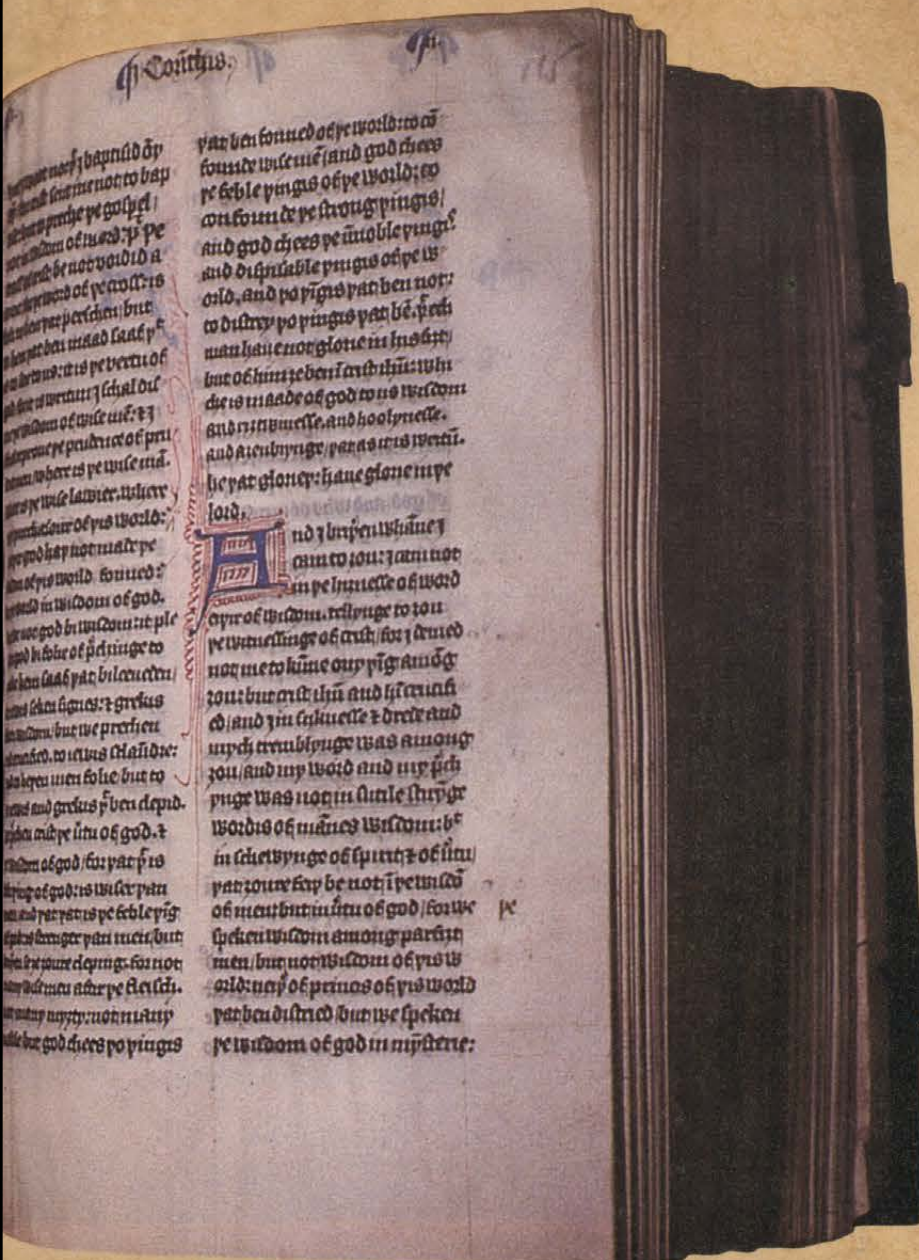 I Corinthis
not þ I baptisid ōy
sent me not to bap
preche þe gospel /
wisdom of word: þͭ þe
be not voidid a
þe word of þe cross: is
þat perschen / but
þat ben maad saaf þͭ
to us: it is þe vertu of
is writun I schal dis
wisdom of wise mē: ⁊ I
reproue þe prudence of pru
where is þe wise mā.
is þe wise lawier. where
of þis world:
god haþ not made þe
of þis world fonned:
world in wisdom of god.
not god bi wisdom: it ple
god bi folie of p̄chinge to
hem saaf þat bileeueden /
seken signes: ⁊ grekis
wisdom / but we prechen
to iewis sclaūdre:
heþen men folie / but to
iewis and grekis þͭ ben clepid.
crist þe v̄tu of god. ⁊
wisdom of god / for þat þͭ is
þing of god: is wiser þan
and þat þat is þe feble þīg
is strenger þan men / but
ȝoure cleping. for not
wise men aftir þe fleisch.
not many myȝty: not many
but god chees þo þingis
þat ben fonned of þe world: to cō
founde wise mē / and god chees
þe feble þingis of þe world: to
confounde þe strong þingis /
and god chees þe ūnoble þingis
and dispisable þingis of þe w
orld. and þo þīgis þat ben not:
to distrey þo þingis þat bē. þͭ ech
man haue not glorie in his siȝt /
but of him ȝe ben ī crist ihū: whi
che is maade of god to us wisdom
and riȝtwisnesse. and hoolynesse.
and aȝenbiynge / þat as it is writū.
he þat glorieþ: haue glorie in þe
lord.
And I briþen whāne I
cam to ȝou: I cam not
in þe hiȝnesse of word
eþir of wisdom. tellynge to ȝou
þe witnessinge of crist / for I demed
not me to kūne ony þīg amōg
ȝou: but crist ihū and hī crucifi
ed / and I in siknesse ⁊ drede and
mych tremblynge was among
ȝou / and my word and my p̄ch
ynge was not in sutile stiryīge
wordis of mānes wisdom: bͭ
in schewynge of spirit ⁊ of v̄tu /
þat ȝoure feiþ be not ī þe wisdō
of men: but in v̄tu of god / for we þe
speken wisdom among parfiȝt
men / but not wisdom of þis w
orld: neiþ of princis of þis world
þat ben distried / but we speken
þe wisdom of god in mysterie: